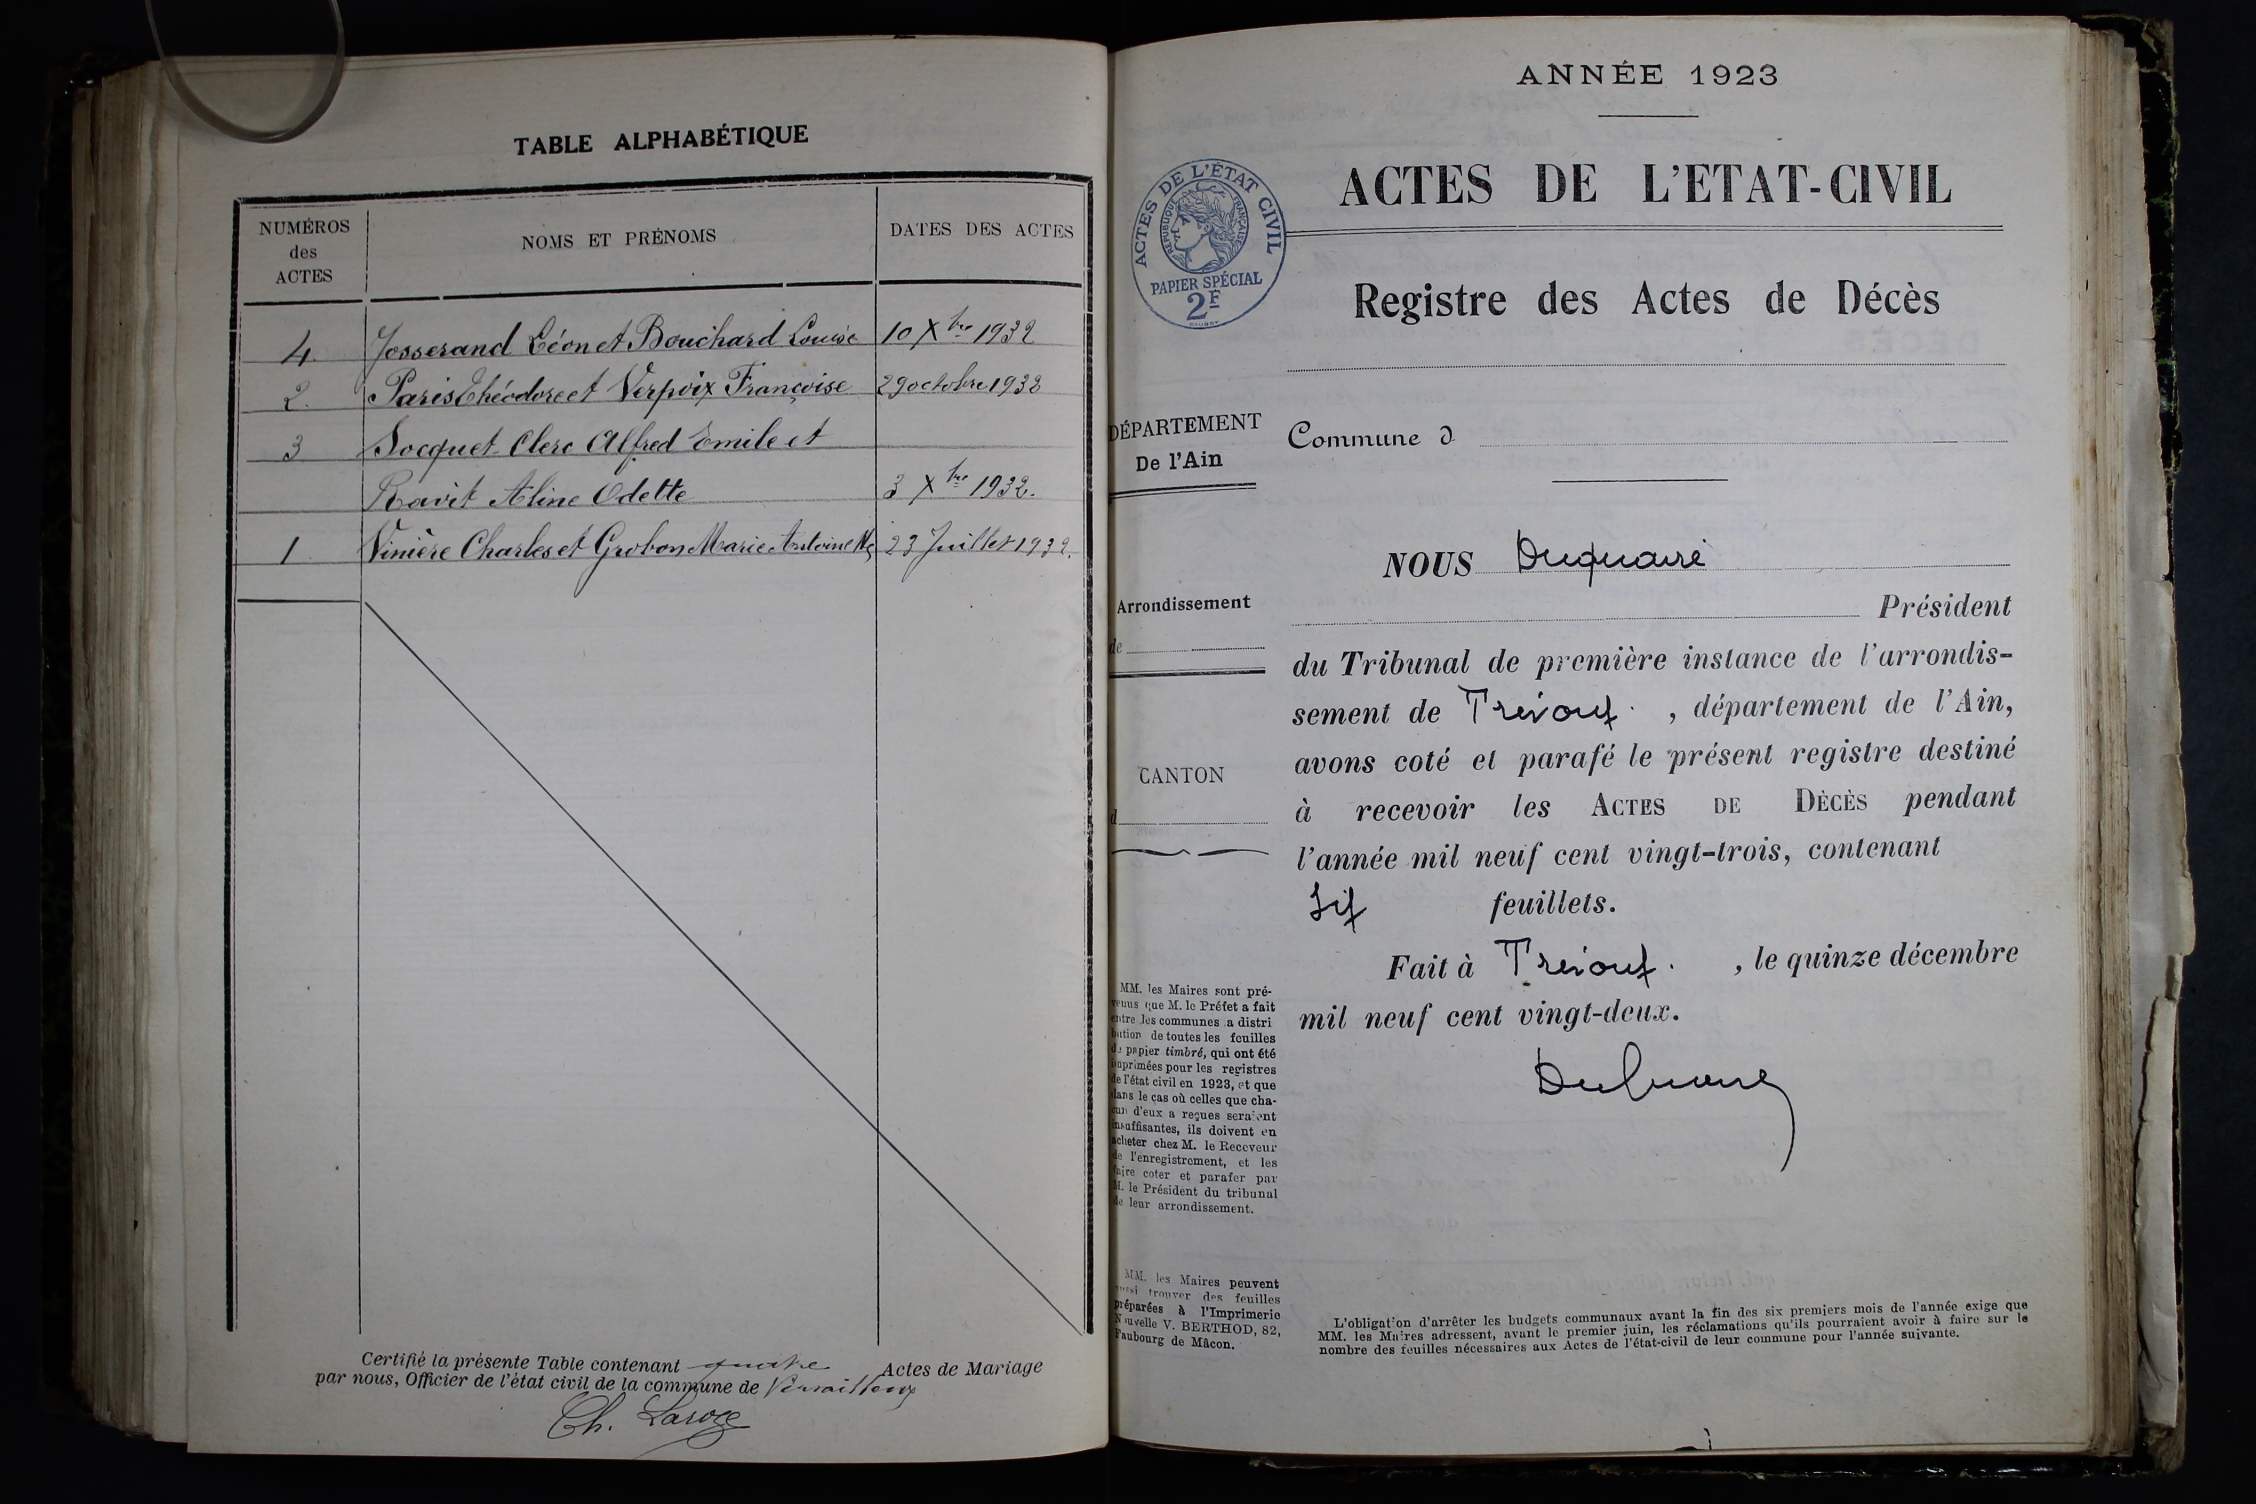 TABLE ALPHABÉTIQUE
NUMÉROS
des
ACTES
NOMS ET PRÉNOMS
DATES DES ACTES
4. Josserand Léon et Bouchard Louise 10 Xbre 1932
2. Paris Théodore et Verpoix Françoise 29 octobre 1932
3 Socquet Clerc Alfred Emile et
Ravit Aline Odette 3 Xbre 1932.
1 Vinière Charles et Grobon Marie Antoinette 23 Juillet 1932.
Certifié la présente Table contenant quatre Actes de Mariage
par nous, Officier de l'état civil de la commune de Versailleux
Ch. Laroze
ANNÉE 1923
ACTES DE L'ÉTAT CIVIL
RÉPUBLIQUE FRANÇAISE
PAPIER SPÉCIAL
2F
ACTES DE L'ETAT-CIVIL
Registre des Actes de Décès
DÉPARTEMENT
De l'Ain
Commune d
Arrondissement
de
CANTON
d
NOUS Duquaire
Président
du Tribunal de première instance de l'arrondis-
sement de Trevoux , département de l'Ain,
avons coté et parafé le présent registre destiné
à recevoir les ACTES DE DÉCÈS pendant
l'année mil neuf cent vingt-trois, contenant
six feuillets.
Fait à Trevoux. , le quinze décembre
mil neuf cent vingt-deux.
MM. les Maires sont pré-
venus que M. le Préfet a fait
entre les communes la distri
bution de toutes les feuilles
de papier timbré, qui ont été
imprimées pour les registres
de l'état civil en 1923, et que
dans le cas où celles que cha-
cun d'eux a reçues seraient
insuffisantes, ils doivent en
acheter chez M. le Receveur
de l'enregistrement, et les
faire coter et parafer par
M. le Président du tribunal
de leur arrondissement.
MM. les Maires peuvent
aussi trouver des feuilles
préparées à l'Imprimerie
Nouvelle V. BERTHOD, 82,
Faubourg de Mâcon.
L'obligation d'arrêter les budgets communaux avant la fin des six premiers mois de l'année exige que
MM. les Maires adressent, avant le premier juin, les réclamations qu'ils pourraient avoir à faire sur le
nombre des feuilles nécessaires aux Actes de l'état-civil de leur commune pour l'année suivante.